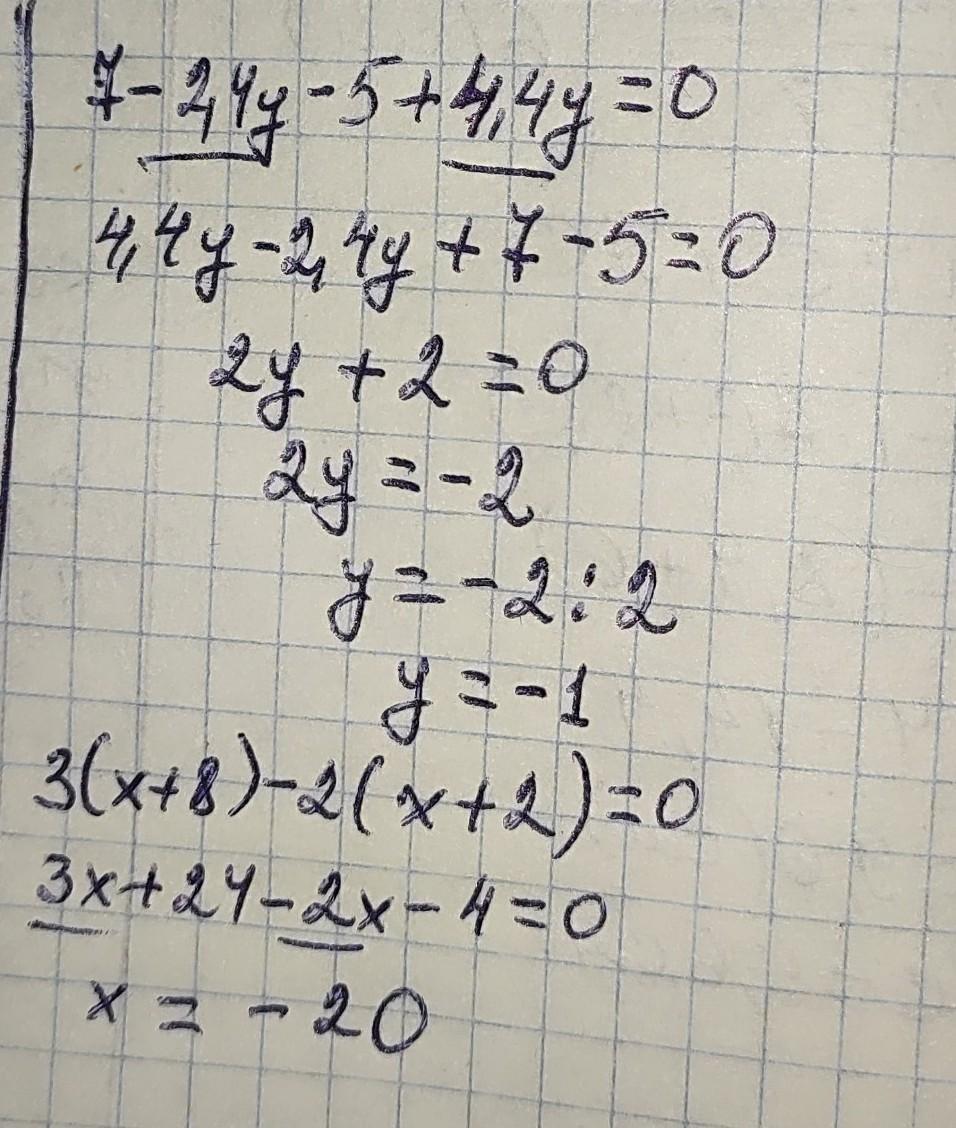 7-2,4y-5+4,4y=0
4,4y-2,4y+7-5=0
2y+2=0
2y=-2
y=-2:2
y=-1
3(x+8)-2(x+2)=0
3x+24-2x-4=0
x=-20